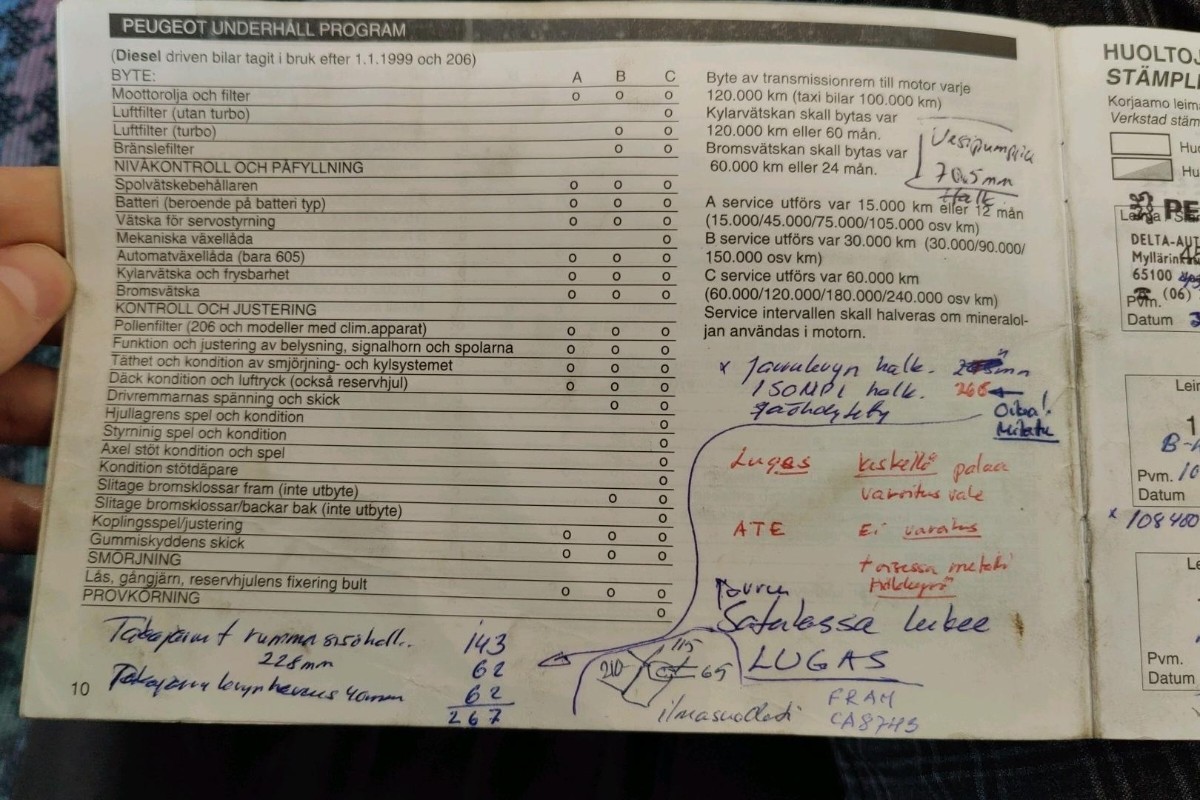 PEUGEOT UNDERHÅLL PROGRAM
(Diesel driven bilar tagit i bruk efter 1.1.1999 och 206)
BYTE: A B C
Moottorolja och filter o o o
Luftfilter (utan turbo) o
Luftfilter (turbo) o o
Bränslefilter o o
NIVÅKONTROLL OCH PÅFYLLNING
Spolvätskebehållaren o o o
Batteri (beroende på batteri typ) o o o
Vätska för servostyrning o o o
Mekaniska växellåda o
Automatväxellåda (bara 605) o o o
Kylarvätska och frysbarhet o o o
Bromsvätska o o o
KONTROLL OCH JUSTERING
Pollenfilter (206 och modeller med clim.apparat) o o o
Funktion och justering av belysning, signalhorn och spolarna o o o
Täthet och kondition av smjörjning- och kylsystemet o o o
Däck kondition och luftryck (också reservhjul) o o o
Drivremmarnas spänning och skick o o
Hjullagrens spel och kondition o
Styrninig spel och kondition o
Axel stöt kondition och spel o
Kondition stötdäpare o
Slitage bromsklossar fram (inte utbyte) o o
Slitage bromsklossar/backar bak (inte utbyte) o
Koplingsspel/justering o o o
Gummiskyddens skick o o o
SMÖRJNING
Lås, gångjärn, reservhjulens fixering bult o o o
PROVKÖRNING o
228mm
143
62
62
267
10
Byte av transmissionrem till motor varje
120.000 km (taxi bilar 100.000 km)
Kylarvätskan skall bytas var
120.000 km eller 60 mån.
Bromsvätskan skall bytas var
60.000 km eller 24 mån.
70.5mm
Halk
A service utförs var 15.000 km eller 12 mån
(15.000/45.000/75.000/105.000 osv km)
B service utförs var 30.000 km (30.000/90.000/
150.000 osv km)
C service utförs var 60.000 km
(60.000/120.000/180.000/240.000 osv km)
Service intervallen skall halveras om mineralol-
jan används i motorn.
x halk. mm
halk.
Mitattu
Lugas keskellä palaa
varoitus valo
ATE Ei varoitus
Satulassa lukee
LUGAS
210 115 69
FRAM
CA8743
HUOLTOJ
STÄMPLI
Korjaamo leima
Verkstad stäm
Huo
Hu
PE
DELTA-AUT
65100
(06)
Pvm.
Datum
Lein
Pvm. 10
Datum
x 108480
Le
Pvm.
Datum